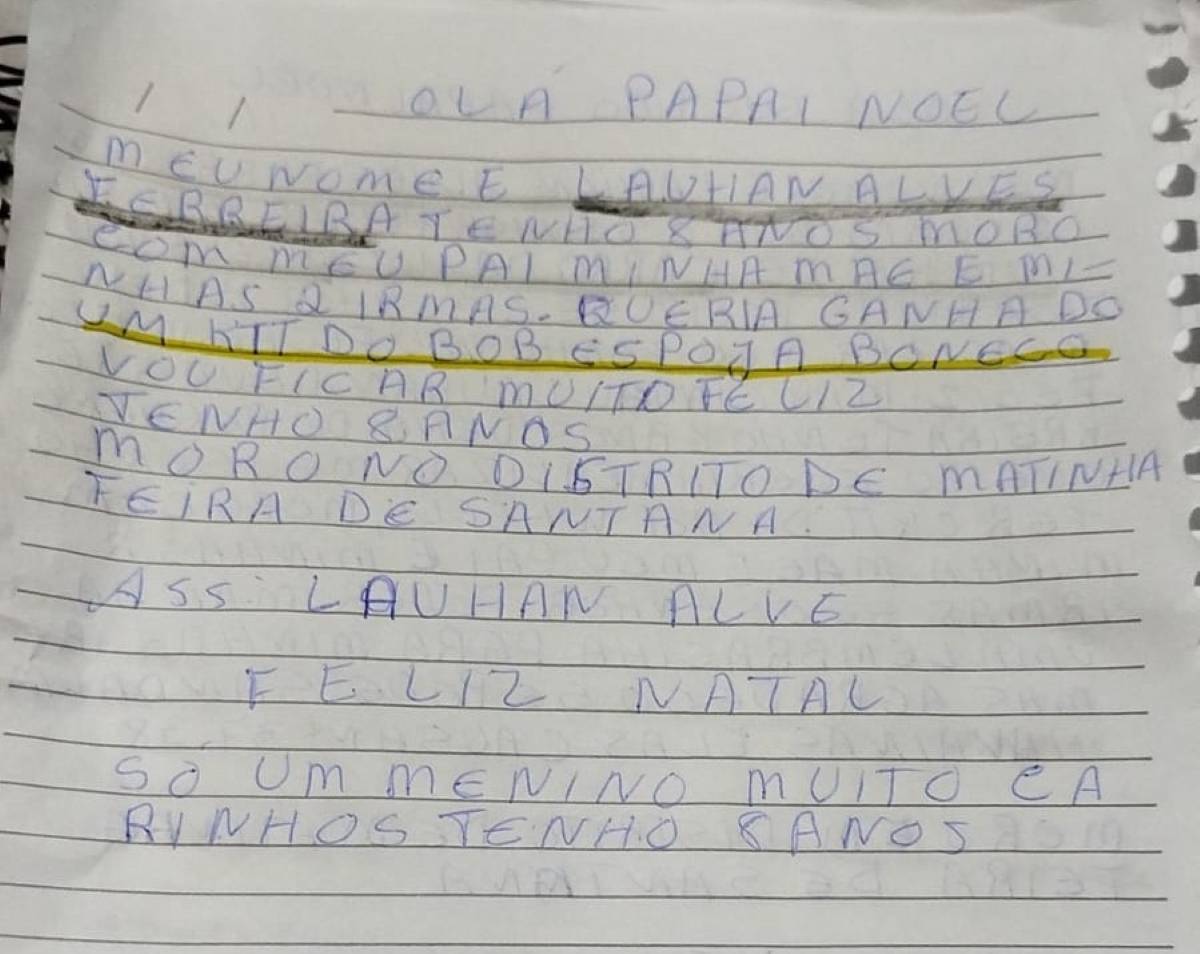 / / OLÁ PAPAI NOEL
MEU NOME E LAUHAN ALVES
FERREIRA TENHO 8 ANOS MORO
COM MEU PAI MINHA MAE E MI-
NHAS 2 IRMAS. QUERIA GANHA DO
UM KIT DO BOB ESPOJA BONECO
VOU FICAR MUITO FELIZ
TENHO 8 ANOS
MORO NO DISTRITO DE MATINHA
FEIRA DE SANTANA.
ASS: LAUHAN ALVE
FELIZ NATAL
SO UM MENINO MUITO CA
RINHOS TENHO 8 ANOS